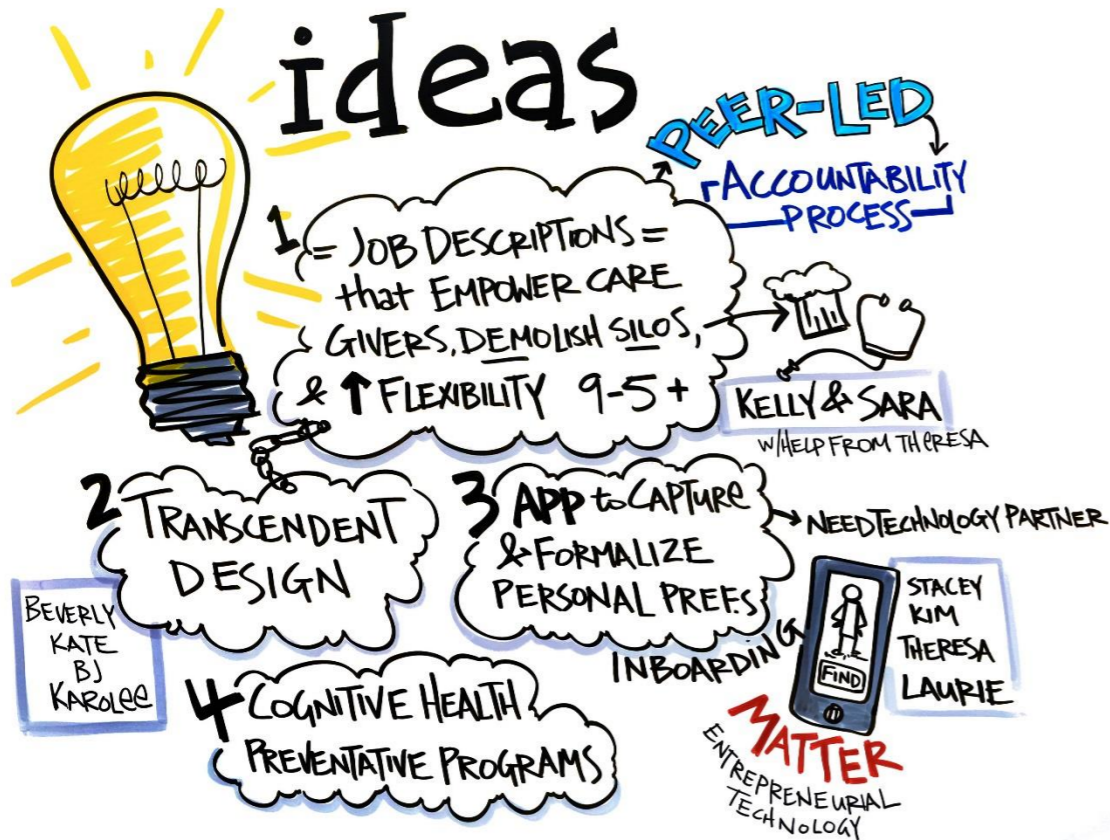 ideas
PEER-LED
ACCOUNTABILITY
PROCESS
1
= JOB DESCRIPTIONS =
that EMPOWER CARE
GIVERS, DEMOLISH SILOS,
& ↑ FLEXIBILITY 9-5+
KELLY & SARA
W/HELP FROM THERESA
2
TRANSCENDENT
DESIGN
BEVERLY
KATE
BJ
KAROLEE
3 APP to CAPTURE
& FORMALIZE
PERSONAL PREFS
NEED TECHNOLOGY PARTNER
INBOARDING
FIND
STACEY
KIM
THERESA
LAURIE
MATTER
ENTREPRENEURIAL
TECHNOLOGY
4 COGNITIVE HEALTH
PREVENTATIVE PROGRAMS